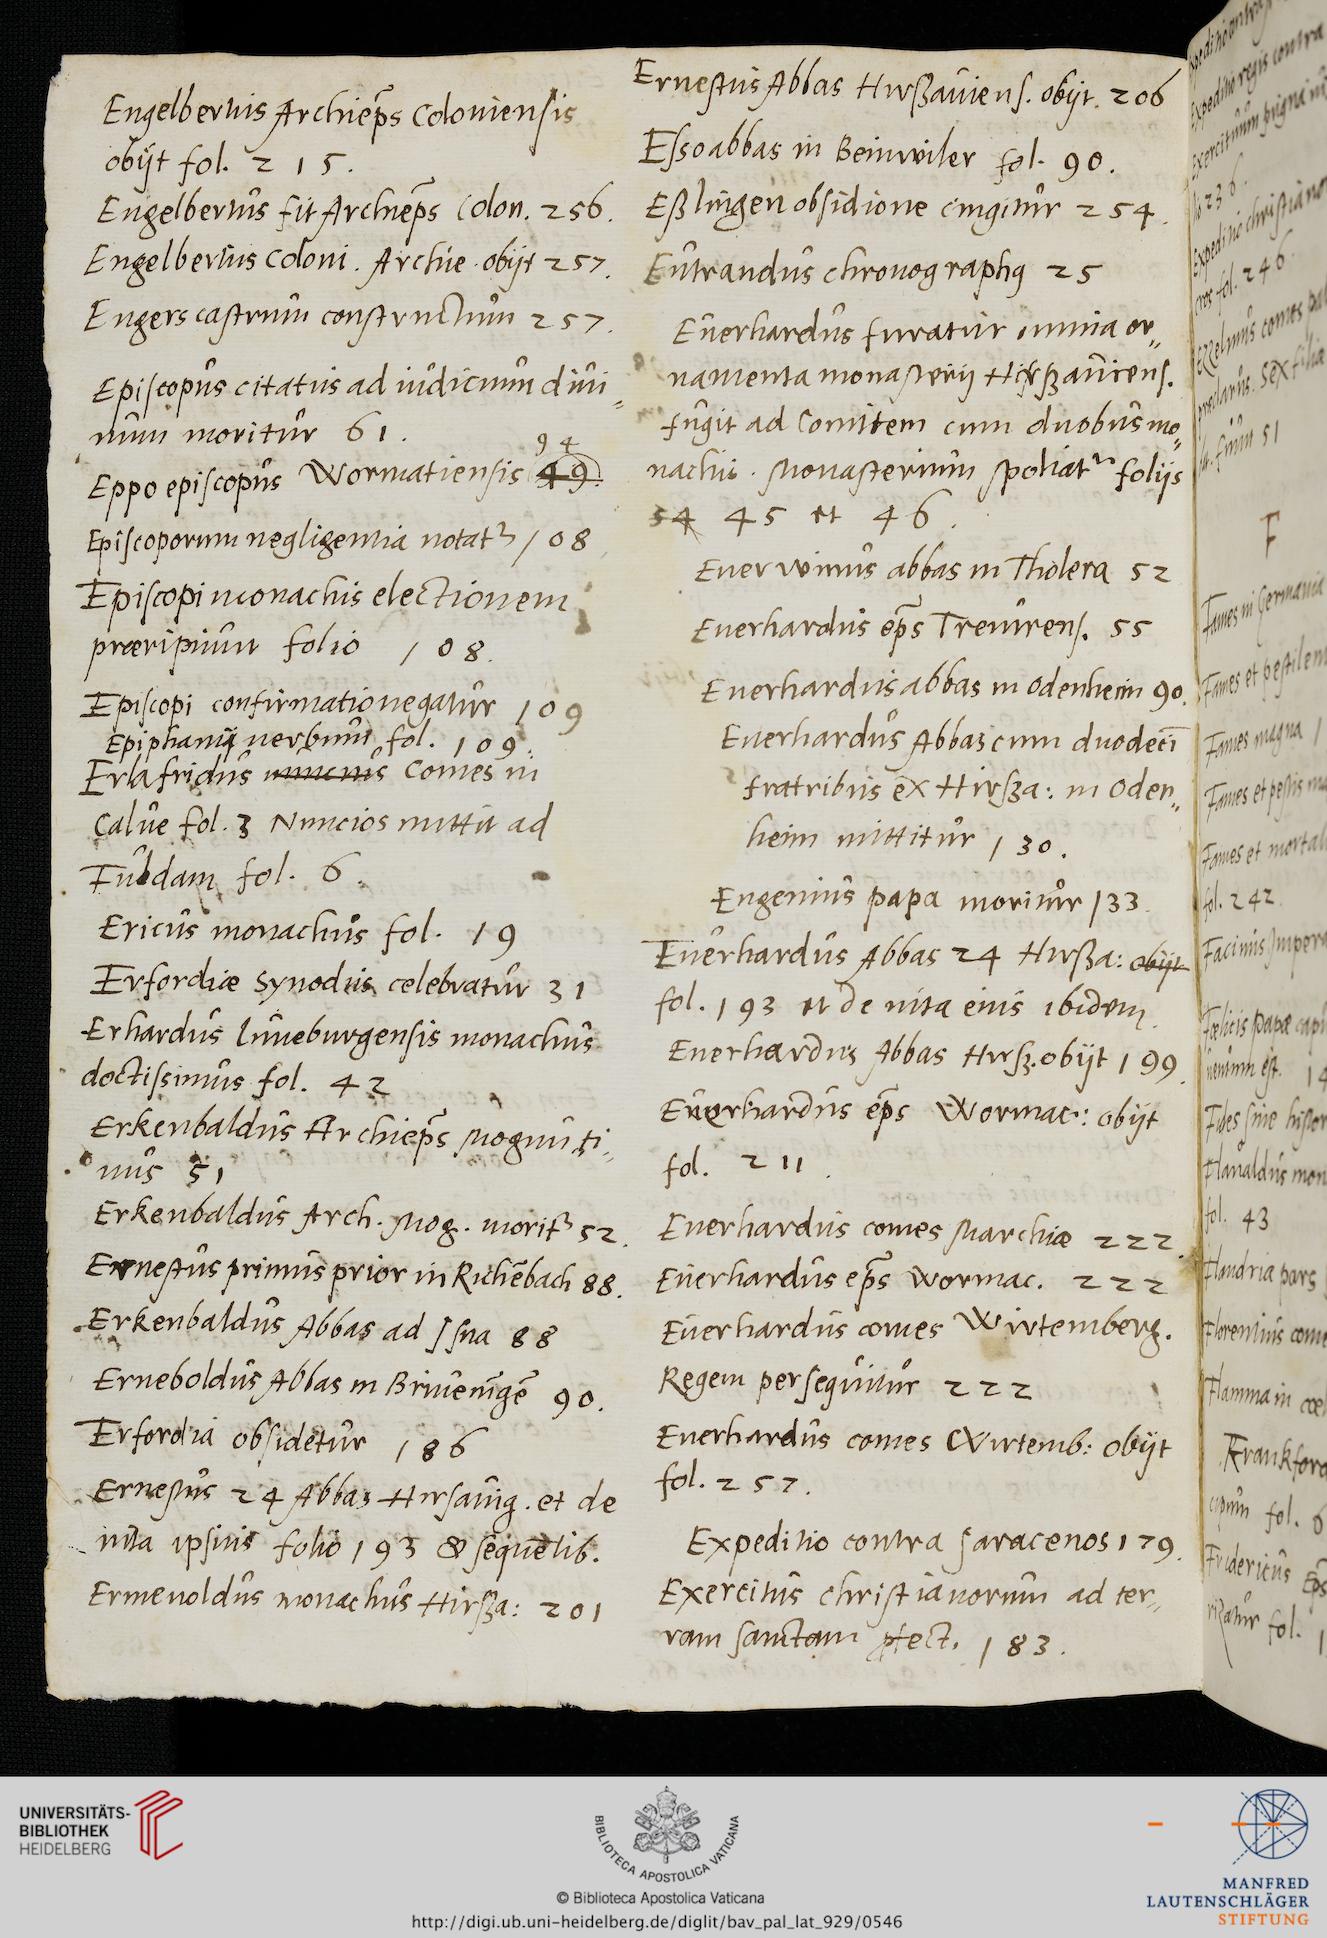 Engelbertus Archiep̄s Coloniensis
obijt fol. 215.
Engelbertus fit Archiep̄s Colon. 256.
Engelbertus Coloni. Archie. obijt 257.
Engers castrum constructum 257.
Episcopus citatus ad iudicium diui„
num moritur 61.
94
Eppo episcopus Wormatiensis 49.
Episcoporum negligentia notatr 108
Episcopi monachis electionem
præripiunt folio 108.
Episcopi confirmatio negatur 109
Epiphanij uerbum fol. 109.
Erlafridus Comes in
Calue fol. 3 Nuncios mittit ad
Fuldam fol. 6.
Ericus monachus fol. 19
Erfordiæ Synodus celebratur 31
Erhardus luneburgensis monachus
doctissimus fol. 42
Erkenbaldus Archiep̄s Mogunti„
nus 51
Erkenbaldus Arch. Mog. moritr 52.
Ernestus primus prior in Riche̅bach 88.
Erkenbaldus Abbas ad Isna 88
Erneboldus Abbas in 90.
Erfordia obsidetur 186
Ernestus 24 Abbas Hirsaug. et de
uita ipsius folio 193 & sequetib.
Ermenoldus monachus Hirßa: 201
Ernestus Abbas Hirßauiens. obijt. 206
Esso abbas in Beinwiler fol. 90.
Eßlingen obsidione cingitur 254.
Eutrandus chronographꝰ 25
Euerhardus furatur omnia or„
namenta monasterij Hirßauiens.
fugit ad Comitem cum duobus mo„
nachis. Monasterium spoliatr folijs
54 45 et 46.
Euerwinus abbas in Tholera 52
Euerhardus ep̄s Treuirens. 55
Euerhardus abbas in Odenheim 90.
Euerhardus Abbas cum duodeci̅
fratribus ex Hirßa: in Oden„
heim mittitur 130.
Eugenius papa moritur 133.
Euerhardus Abbas 24 Hirßa: obijt
fol. 193 et de uita eius ibidem.
Euerhardus Abbas Hirß. obijt 199.
Euerhardus ep̄s Wormac: obijt
fol. 211.
Euerhardus comes Marchiæ 222.
Euerhardus ep̄s Wormac. 222
Euerhardus comes Wirtemberg.
Regem persequitur 222
Euerhardus comes Wirtemb: obijt
fol. 257.
Expeditio contra Saracenos 179.
Exercitus christianorum ad ter„
ram sanctam ꝓfect. 183.
F
Fames in Germania
Fames et pestilen
Fames magna
Fames et pestis
Fames et mortal
fol. 242
fol. 43
Flandria pars
Florentius come
Flamma in cœl
Frankford
fol. 6
Fridericus Ep̄s
fol. 1
UNIVERSITÄTS-
BIBLIOTHEK
HEIDELBERG
BIBLIOTECA APOSTOLICA VATICANA
© Biblioteca Apostolica Vaticana
http://digi.ub.uni-heidelberg.de/diglit/bav_pal_lat_929/0546
MANFRED
LAUTENSCHLÄGER
STIFTUNG